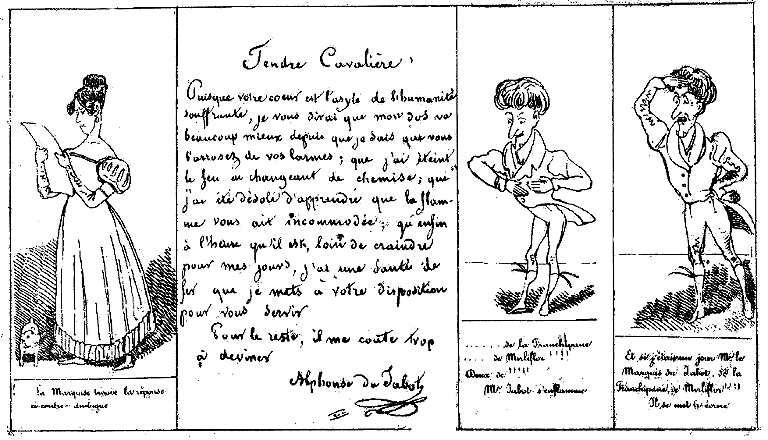 Tendre Cavalière,
Puisque votre coeur est l'asyle de l'humanité
souffrante, je vous dirai que mon dos va
beaucoup mieux depuis que je sais que vous
l'arrosez de vos larmes; que j'ai éteint
le feu en changeant de chemise; que
j'ai été désolé d'apprendre que la flam-
me vous ait incommodée; qu'enfin
à l'heure qu'il est, loin de craindre
pour mes jours, j'ai une santé de
fer que je mets à votre disposition
pour vous servir
Pour le reste, il me coute trop
à deviner
Alphonse du Jabot
La Marquise trouve la réponse
ci-contre
de la Franchipane
de Mirliflor !!!!
Mr Jabot s'enflamme
Et si j'étais un jour Mr le
Marquis du Jabot, de la
Franchipane, de Mirliflor !!!!
Il se met à écrire